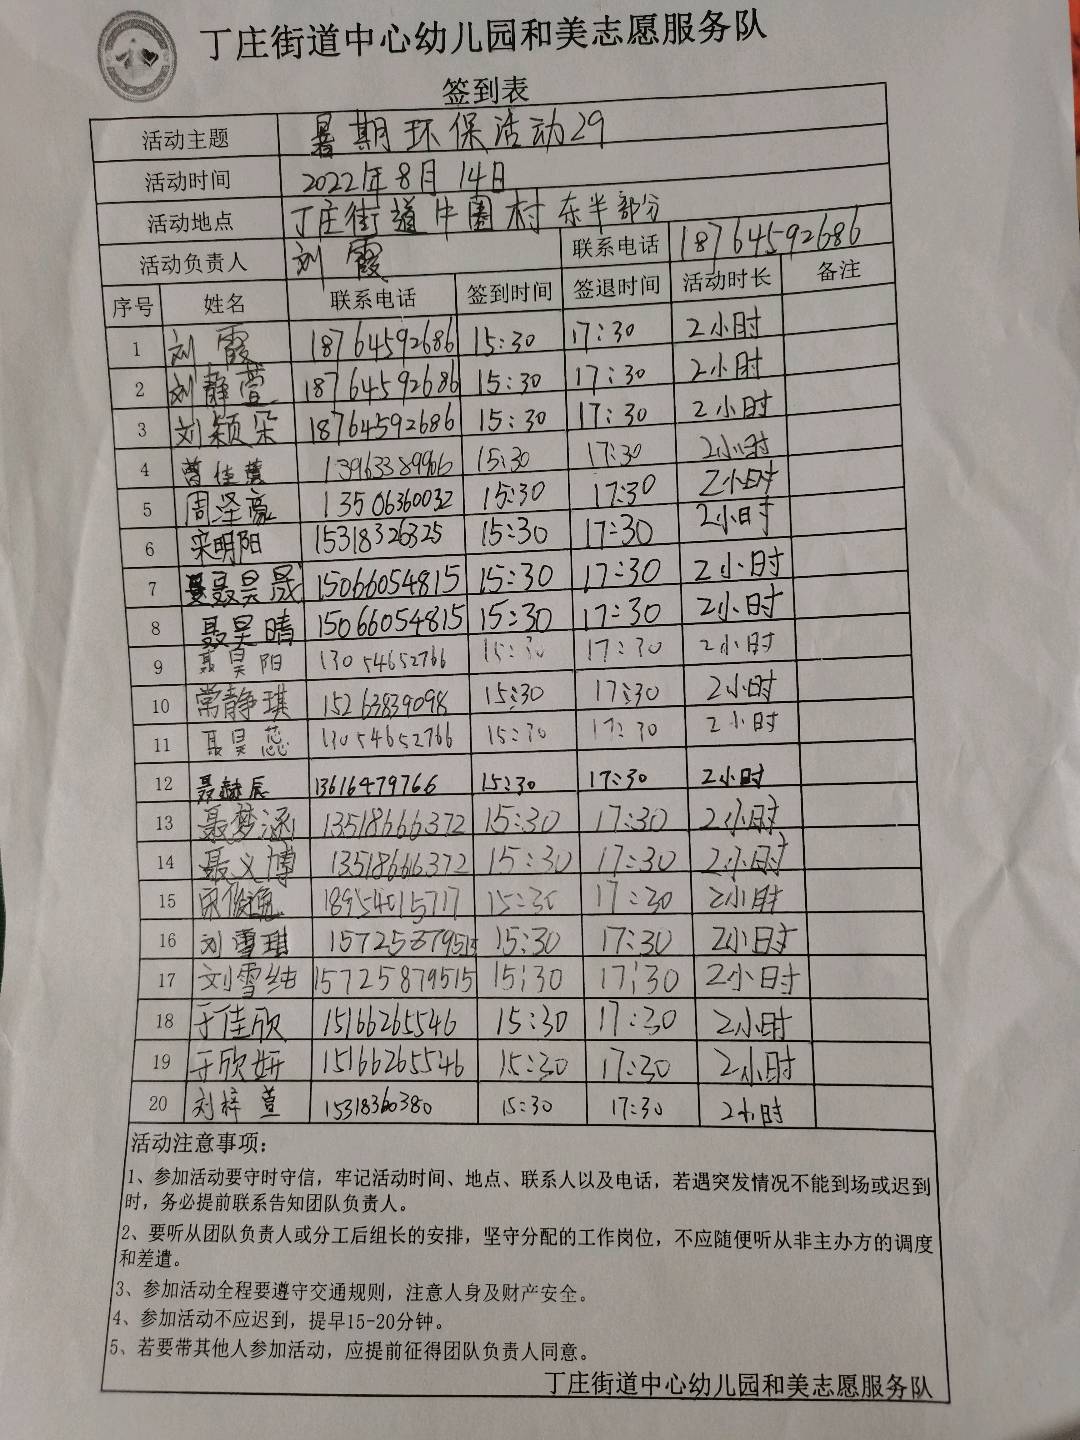 丁庄街道中心幼儿园和美志愿服务队
签到表
活动主题 暑期环保活动29
活动时间 2022年8月14日
活动地点 丁庄街道牛圈村东半部分
活动负责人 刘霞 联系电话 18764592686
序号 姓名 联系电话 签到时间 签退时间 活动时长 备注
1 刘霞 18764592686 15:30 17:30 2小时
2 刘静萱 18764592686 15:30 17:30 2小时
3 刘颖朵 18764592686 15:30 17:30 2小时
4 曹佳萱 13963389966 15:30 17:30 2小时
5 周泽豪 13506360032 15:30 17:30 2小时
6 宋明阳 15318326325 15:30 17:30 2小时
7 聂昊晟 15066054815 15:30 17:30 2小时
8 聂昊晴 15066054815 15:30 17:30 2小时
9 聂昊阳 13054652766 15:30 17:30 2小时
10 常静琪 15263839098 15:30 17:30 2小时
11 聂昊蕊 13054652766 15:30 17:30 2小时
12 聂赫辰 13616479766 15:30 17:30 2小时
13 聂梦涵 13518666372 15:30 17:30 2小时
14 聂义博 13518666372 15:30 17:30 2小时
15 宋俊逸 18954015717 15:30 17:30 2小时
16 刘雪琪 15725879515 15:30 17:30 2小时
17 刘雪纯 15725879515 15:30 17:30 2小时
18 于佳欣 15166265546 15:30 17:30 2小时
19 于欣妍 15166265546 15:30 17:30 2小时
20 刘梓萱 15318360380 15:30 17:30 2小时
活动注意事项：
1、参加活动要守时守信，牢记活动时间、地点、联系人以及电话，若遇突发情况不能到场或迟到
时，务必提前联系告知团队负责人。
2、要听从团队负责人或分工后组长的安排，坚守分配的工作岗位，不应随便听从非主办方的调度
和差遣。
3、参加活动全程要遵守交通规则，注意人身及财产安全。
4、参加活动不应迟到，提早15-20分钟。
5、若要带其他人参加活动，应提前征得团队负责人同意。
丁庄街道中心幼儿园和美志愿服务队